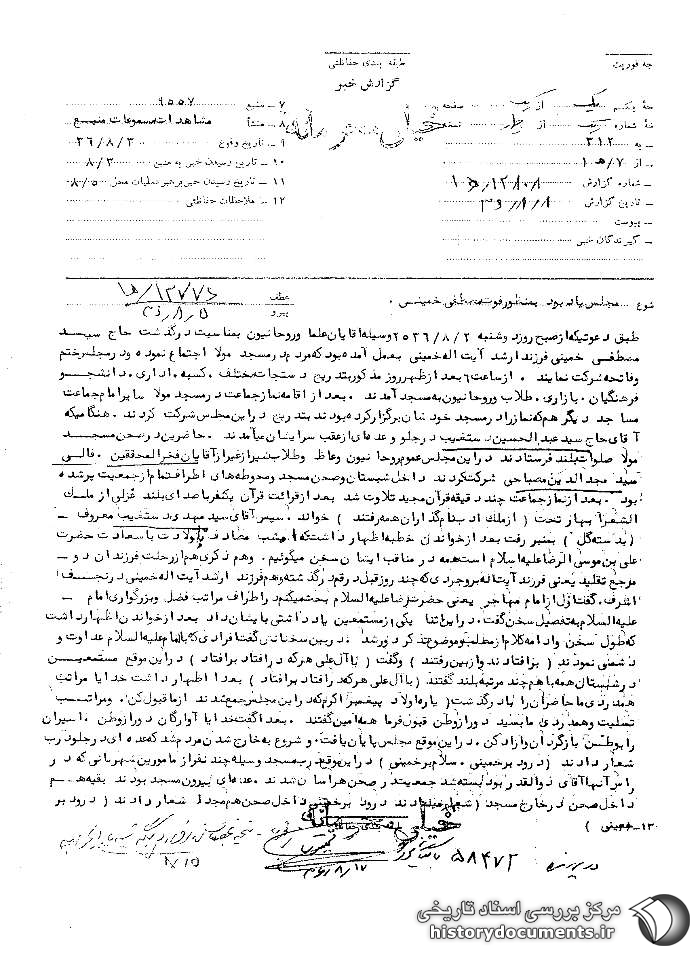 طبقه بندی حفاظتی
گزارش خبر
خیلی محرمانه
به ۳۱۲
۷ – منبع ۹۵۵۷
۸ – منشأ مشاهدات مسموعات منبع
۹ – تاریخ وقوع ۳۶/۸/۳
۱۰ – تاریخ رسیدن خبر به منبع ۸/۳
۱۱ – تاریخ رسیدن خبر برهبر عملیات محل ۸/۰۵
۱۲ – ملاحظات حفاظتی
– شماره گزارش
– تاریخ گزارش
– پیوست
– گیرندگان خبر
موضوع – مجلس یادبود بمنظور فوت مصطفی خمینی
عطف
پیرو
طبق دعوتیکه از صبح روز دوشنبه ۲۵۳۶/۸/۲ وسیله آقایان علما وروحانیون بمناسبت درگذشت حاج سید
مصطفی خمینی فرزند ارشد آیت اله خمینی بعمل آمده بود که مردم در مسجد مولا اجتماع نموده ودرمجلس ختم
وفاتحه شرکت نمایند . ازساعت ۶ بعد ازظهر روز مذکور بتدریج دستجات مختلف ، کسبه ، اداری ، دانشجو
فرهنگیان ، بازاری ، طلاب وروحانیون به مسجد آمدند . بعد از اقامه نماز جماعت درمسجد مولا سایر امام جماعت
مساجد دیگر هم که نماز را درمسجد خودشان برگزار کرده بودند بتدریج دراین مجلس شرکت کردند . هنگامیکه
آقای حاج سید عبدالحسین دستغیب درجلو وعده ای ازعقب سرایشان میآمدند . حاضرین درصحن مسجد
مولا صلوات بلند فرستادند دراین مجلس عموم روحانیون وعاظ وطلاب شیراز غیر از آقایان فخرالمحققین . فالی
سید مجد الدین مصباحی شرکت کردند . داخل شبستان وصحن مسجد ومحوطه های اطراف تمام از جمعیت پر شده
بود . بعد ازنماز جماعت چند دقیقه قرآن مجید تلاوت شد بعد از قرائت قرآن یکنفر با صدای بلند غزلی از ملک
الشعرا بهار تحت ( از ملک ادب نام گذاران همه رفتند ) خواند . سپس آقای سید مهدی دستغیب معروف
( بدسته گل ) بمنبر رفت بعد ازخواندن خطبه اظهار داشت که امشب مصادف باولادت با سعادت حضرت
علی بن موسی الرضا علیه السلام است همه در مناقب ایشان سخن میگوئیم . وهم ذکری هم از رحلت فرزندان دو
مرجع تقلید یعنی فرزند آیت اله بروجردی که چند روز قبل درقم درگذشته وهم فرزند ارشد آیت اله خمینی درنجف
اشرف . گفت اول از امام مهاجر یعنی حضرت رضا علیه السلام بحث میکنم ودراطراف مراتب فضل وبزرگواری امام
علیه السلام به تفصیل سخن گفت . دراین اثنا یکی از مستمعین یادداشتی بایشان داد بعد ازخواندن اظهار داشت
که طول سخن وادامه کلام از مطلب وموضوع تذکر دور شد . دربین سخنانش گفت افرادی که با امام علیه السلام عداوت و
دشمنی نمودند ( برافتادند وازبین رفتند ) وگفت ( باآل علی هرکه درافتاد برافتاد ) دراین موقع مستمعین
درشبستان همه باهم چند مرتبه بلند گفتند ( باآل علی هرکه درافتاد برافتاد ) بعدا اظهار داشت خدایا مراتب
همدردی ما حاضران را بادرگذشت ( پاره اولاد پیغمبر اکرم که دراین مجلس جمع شدند از ما قبول کن . ومراتب
تسلیت وهمدردی ما بسید دور از وطن قبول فرما همه آمین گفتند . بعدا گفت خدایا آوارگان دور از وطن ، اسیران
را بوطنشن بازگردان وآزاد کن . دراین موقع مجلس پایان یافت ، وشروع به خارج شدن مردم شد که عده ای درجلو درب
شعار دادند ( درود برخمینی . سلام برخمینی ) دراین موقع درب مسجد وسیله چند نفر از مامورین شهربانی که در
رأس آنها آقای ذوالقدر بود بسته شد جمعیت درصحن هراسان شدند . عده ای بیرون مسجد بودند بقیه هم
داخل صحن درخارج مسجد ( شعار میدادند درود برخمینی داخل صحن هم مجدا شعار دادند ( درود بر
۱۳– خمینی )
خیلی محرمانه
در پرونده ۵۸۴۷۲
مرکز بررسی اسناد تاریخی
historydocuments.ir